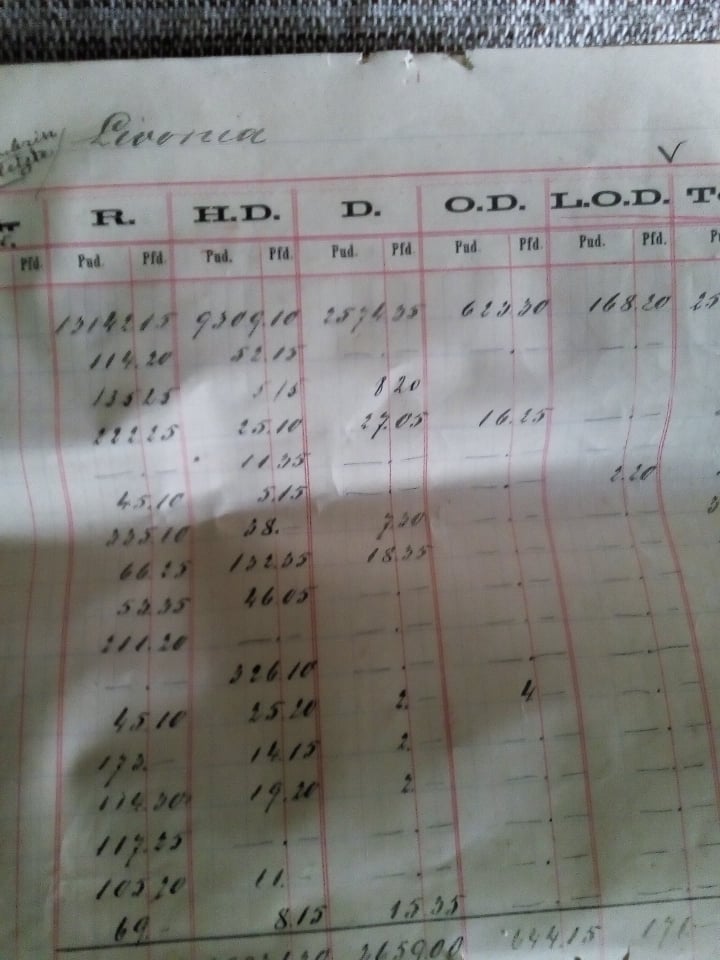 Livonia
R. H.D. D. O.D. L.O.D.
Pfd. Pud. Pfd. Pud. Pfd. Pud. Pfd. Pud. Pfd. Pud. Pfd.
13142.15 9309.10 2574.35 623.30 168.20
114.20 52.15 — . — — . — — . —
135.25 5.15 8.20 — . — — . —
222.25 25.10 27.05 16.25 — . —
— . — 11.35 — . — — . — — . —
45.10 5.15 — . — — . — 2.20
335.10 38. — 7.30 — . — — . —
66.25 132.35 18.35 — . — — . —
53.35 46.05 — . — — . — — . —
211.20 — . — — . — — . — — . —
— . — 326.10 — . — — . — — . —
45.10 25.20 2. — 4 — — . —
173. — 14.15 2. — — . — — . —
114.30 19.20 2. — — . — — . —
117.25 — . — — . — — . — — . —
105.20 11. — — . — — . — — . —
69 — 8.15 15.35 — . — — . —
2659.00 644.15 171 —